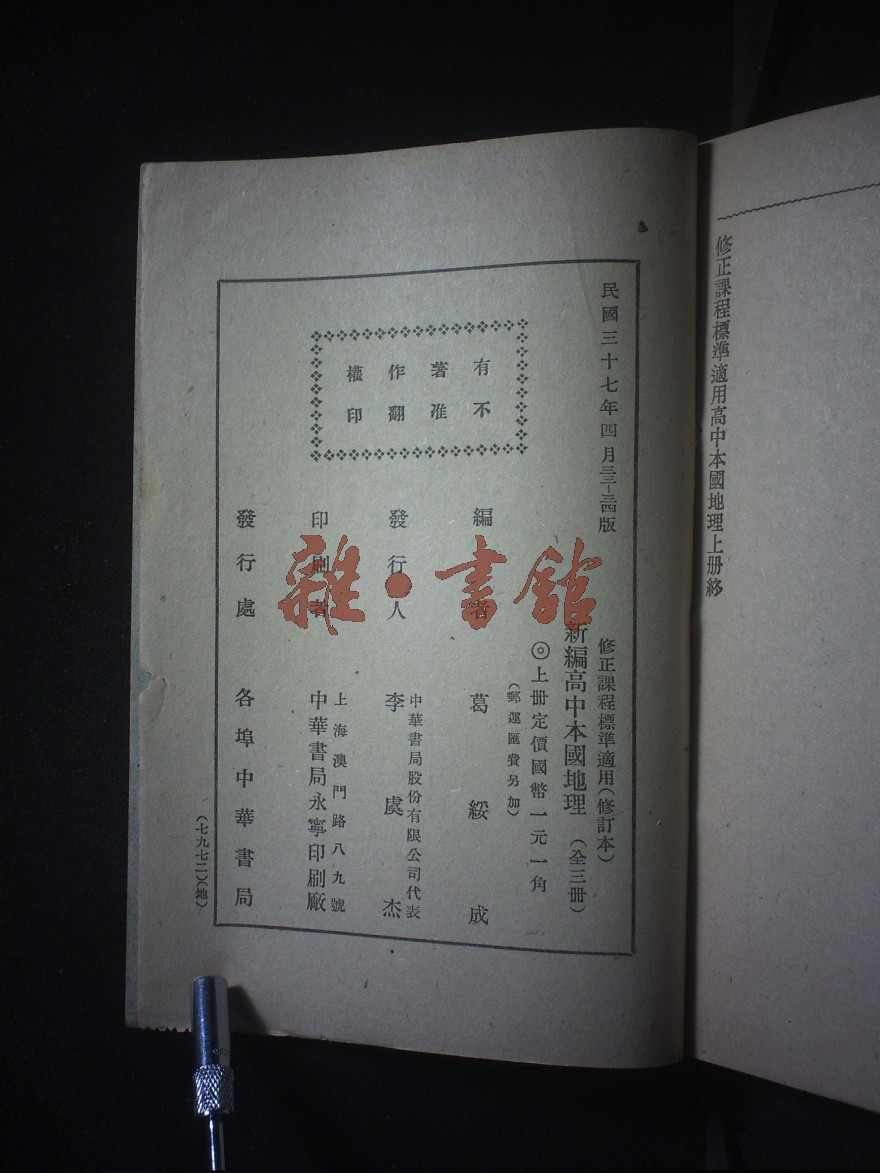 修正課程標準適用高中本國地理上册終
民國三十七年四月三三—三四版
修正課程標準適用(修訂本)
新編高中本國地理(全三册)
◎上册定價國幣一元一角
(郵運匯費另加)
有不
著准
作翻
權印
編著者 葛綏成
發行人 中華書局股份有限公司代表
李虞杰
印刷者 上海澳門路八九號
中華書局永寧印刷廠
發行處 各埠中華書局
(七九七二)(地)
雜·書館